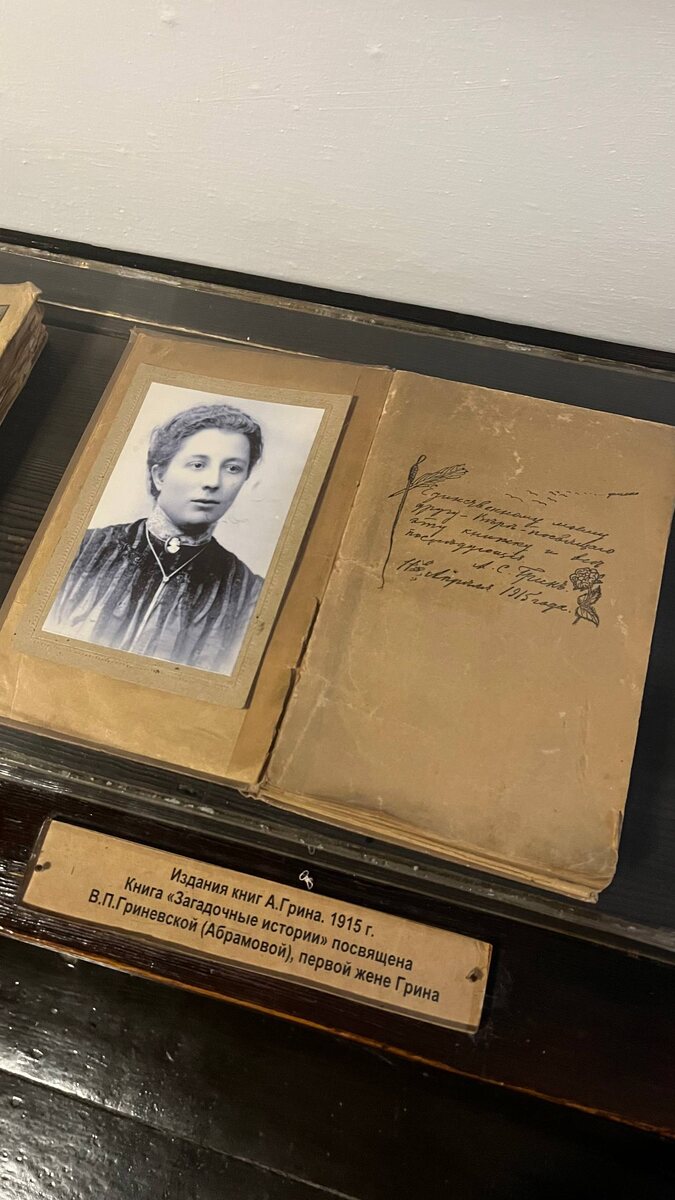 Единственному моему
другу – Вере – посвящаю
эту книжку и все
последующие
А. С. Гринъ.
11 Апреля 1915 года.
Издания книг А.Грина. 1915 г.
Книга «Загадочные истории» посвящена
В.П.Гриневской (Абрамовой), первой жене Грина